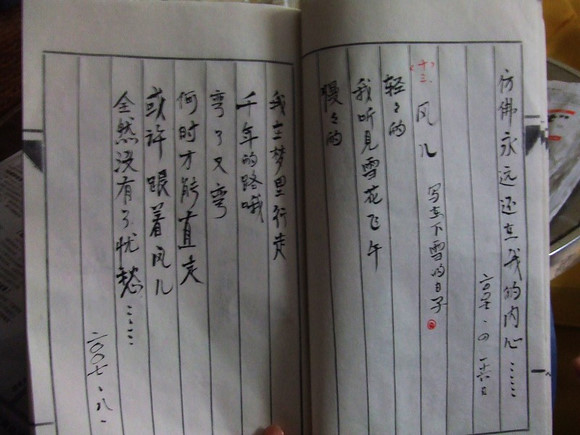 仿佛永远还在我的内心……
二〇〇七·四·十六日
(十三) 风儿 写在下雪的日子
轻々的
我听见雪花飞午
慢々的
我在梦里行走
千年的路哦
弯了又弯
何时才能直走
或许跟着风儿
全然没有了忧愁……
二〇〇七·八·